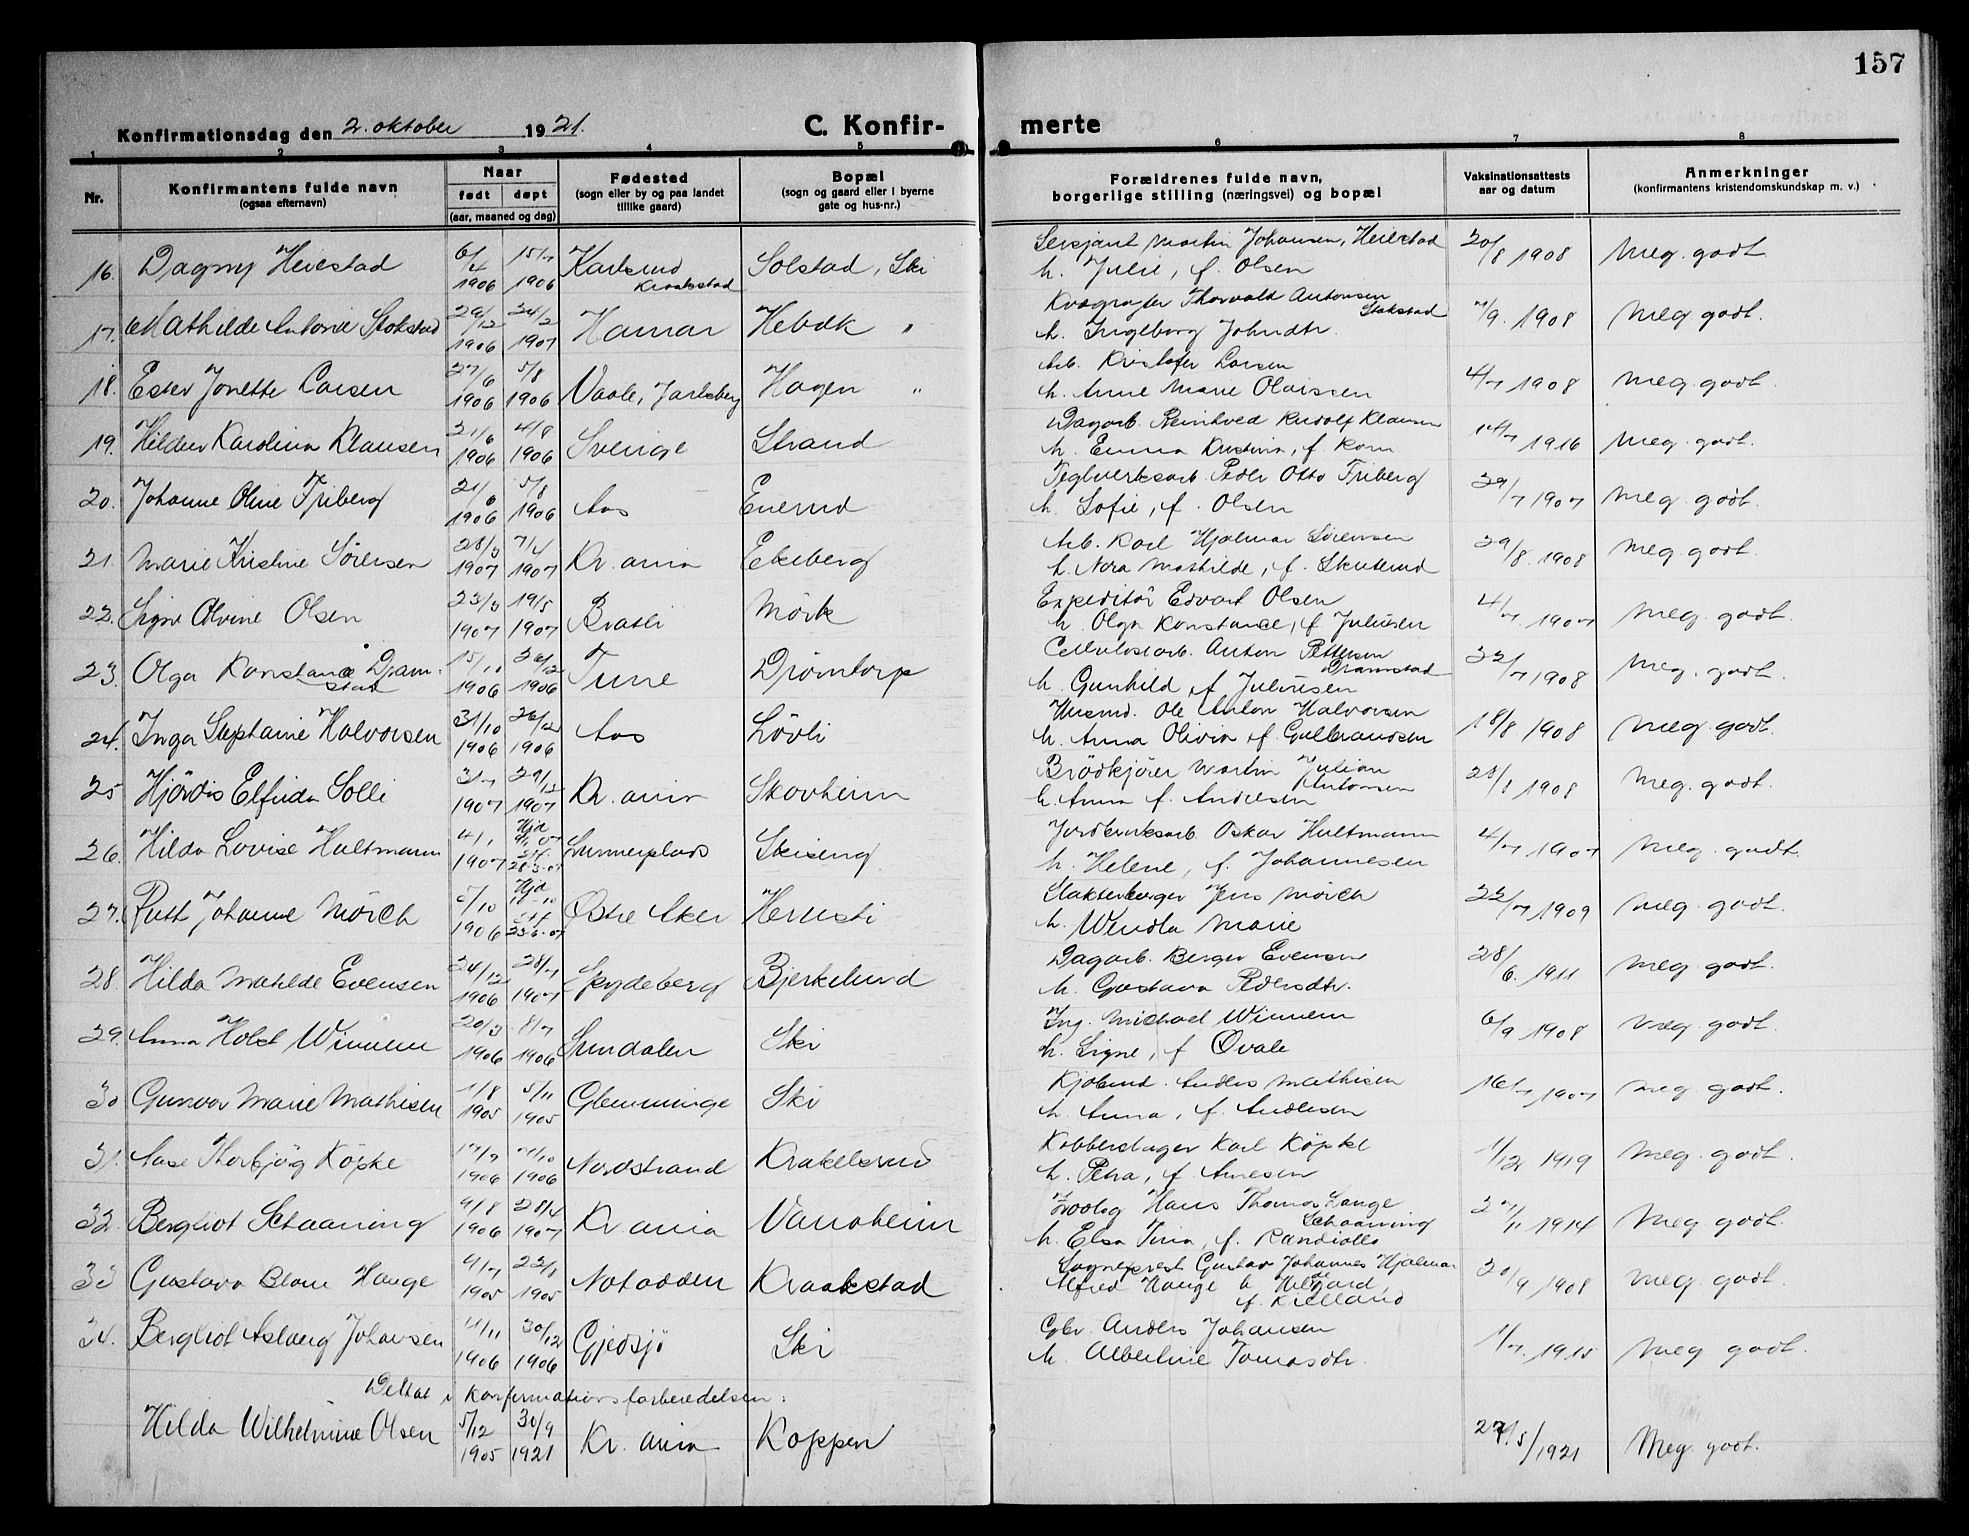 157
Konfirmationsdag den 2. oktober 1921. C. Konfir- merte
1 2 3 4 5 6 7 8
Nr. Konfirmantens fulde navn (ogsaa efternavn) Naar født døpt (aar, maaned og dag) Fødested (sogn eller by og paa landet tillike gaard) Bopæl (sogn og gaard eller i byerne gate og hus-nr.) Forældrenes fulde navn, borgerlige stilling (næringsvei) og bopæl Vaksinationsattests aar og datum Anmerkninger (konfirmantens kristendomskundskap m. v.)
16. Dagny Heiestad 6/4 1906 15/7 1906 Karlsrud Kraakstad Solstad, Ski Sersjant Martin Johansen, Heiestad h. Julie, f. Olsen 20/8 1908 Meg. godt
17. Mathilde Antonie Stokstad 29/12 1906 24/2 1907 Hamar Hebæk " Thorvald Antonsen Stokstad h. Ingeborg Johndtr. 7/9. 1908 Meg godt.
18. Ester Jonette Larsen 27/6 1906 5/8 1906 Vaale, Jarlsberg Hagen " Arb. Kristofer Larsen h. Anne Marie Olaissen 4/7 1908 Meg. godt.
19. Hildur Karolina Klausen 21/6 1906 4/8 1906 Sverige Strand Dagarb. Reinhved Rudolf Klausen h. Emma Kristina, f. Korn 14/7 1916 Meg. godt.
20. Johanne Oline Friberg 21/6 1906 5/8 1906 Aas Enerud Teglverksarb. Peder Otto Friberg h. Sofie, f. Olsen 29/7 1907 Meg. godt.
21. Marie Kristine Sörensen 28/3 1907 7/4 1907 Kr. ania Ekeberg Arb. Karl Hjalmar Sörensen h. Nora Mathilde, f. Skuterud 29/8. 1908 Meg. godt.
22. Signe Olvine Olsen 23/3 1907 19/5 1907 Bratli Mörk Expeditör Edvart Olsen h. Olga Konstance, f. Juliusen 4/7 1907 Meg. godt.
23. Olga Konstance Dramstad 15/10 1906 26/12 1906 Tune Drömtorp Cellulosearb. Anton Pettersen Dramstad h. Gunhild, f. Juliusen 22/7 1908 Meg. godt.
24. Inga Stephanie Halvorsen 31/10 1906 26/12 1906 Aas Lövli Husmd. Ole Anton Halvorsen h. Anna Olivia, f. Gulbrandsen 18/8 1908 Meg. godt.
25 Hjördis Elfrida Solli 3/7 1907 29/12 1907 Kr. ania Skovheim Brödkjörer Martin Julian Antonsen h. Anna f. Andresen 28/8 1908 Meg. godt.
26. Hilda Lovise Hultmann 4/1 1907 Hjd. Stf. 28-3-07 Skiseng Jordbruksarb. Oskar Hultmann h. Helene, f. Johannesen 4/7 1907 Meg. godt.
27. Rutt Johanne Mörch 5/10 1906 Hjd 11-10 Stf 23-6-07 Østre Aker Jens Mörch h. Wendla Marie 22/7 1909 Meg. godt.
28. Hilda Matilde Evensen 24/12 1906 28/7 1907 Spydeberg Bjerkelund Dagarb. Berger Evensen h. Gustava Pedersdtr. 28/6. 1911 Meg godt.
29. Anna Holst Winnem 20/3 1906 8/7 1906 Sundalen Ski Ing. Michael Winnem h. Signe, f Qvale 6/9 1908 Meg godt.
30 Gunvor Marie Mathisen 1/8 1905 5/11 1905 Glemminge Ski Kjöbmd. Anders Mathisen h. Anna, f. Andresen 16/7 1907 Meg godt.
31. Aase Thorbjörg Köpke 17/9 1906 21/10 1906 Nordstrand Krakelsrud Kobberslager Karl Köpke h. Petra, f Arnesen 1/12 1919 Meg. godt.
32. Bergliot Schaaning 9/8 1906 28/4 1907 Kr. ania Vannheim Zoolog Hans Thomas Lange Schaaning h. Elsa Tina, f. 27/11 1914 Meg godt.
33 Gustava Blom Hauge 9/7 1905 23/8 1905 Notodden Kraakstad Sogneprest Gustav Johannes Hjalmar Alfred Hauge h Hildegard, f. Kielland 20/9 1908 Meg godt.
34. Bergliot Aslaug Johansen 4/11 1906 30/12 1906 Gjedsjö Ski Gbr. Anders Johansen h. Albertine Tomasdtr. 1/7. 1915 Meg godt.
Deltat i konfirmationsforberedelsen:
Hilda Wilhelmine Olsen 5/12 1905 30/9 1921 Kr. ania Koppen 27/5/1921 Meg. godt.